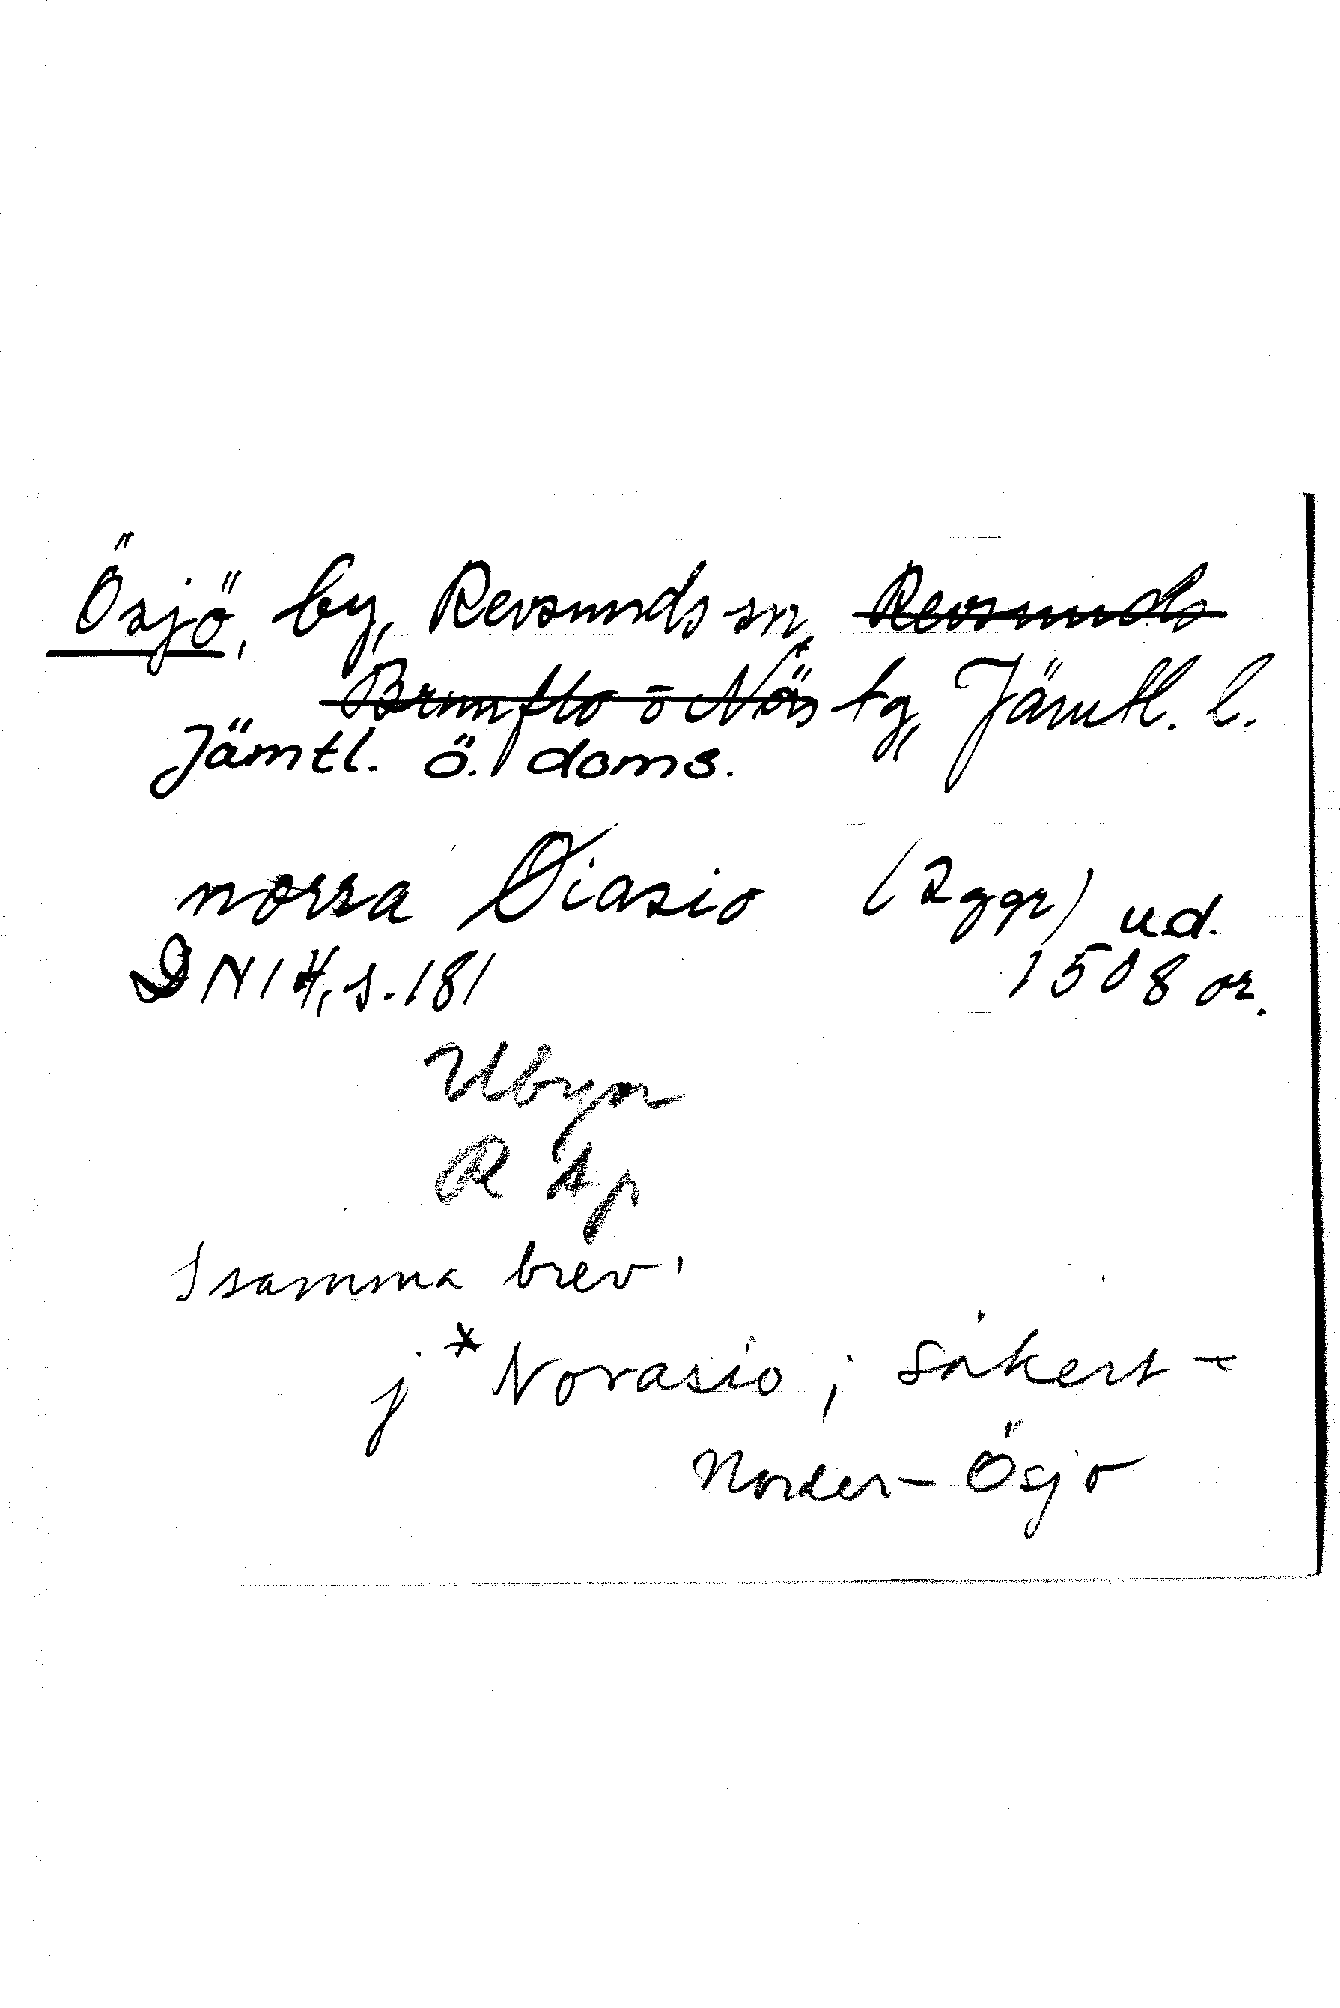 Ösjö, by, Revsunds sn, Revsunds
Brunflo o Näs tg, Jämtl. l.
Jämtl. ö. doms.
norra Øiasio (2 ggr) u.d.
DN 14, s. 181 1508 or.
Ubyn
I samma brev:
j * Norasio ; säkert -
Norder-Ösjö